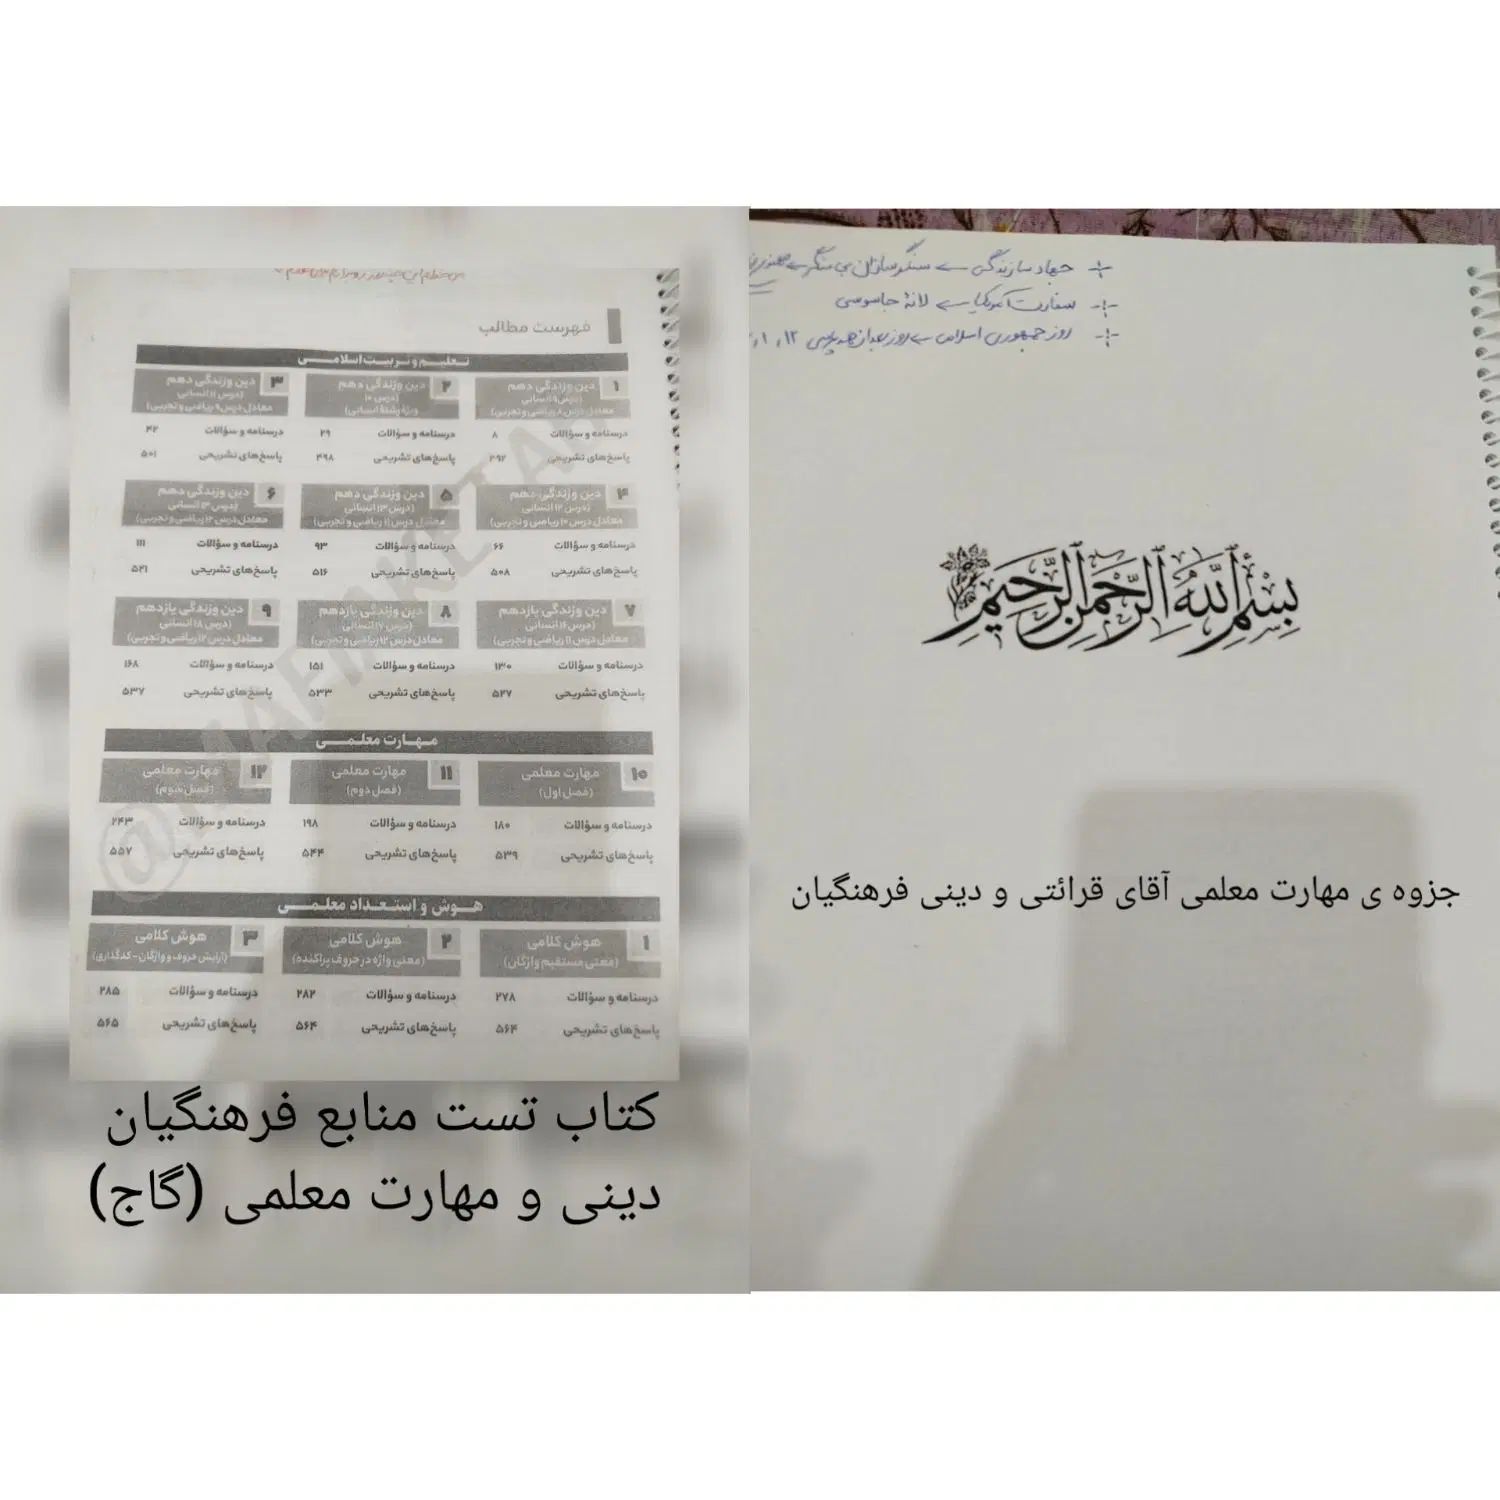 فهرست مطالب
تعلیم و تربیت اسلامی
۱ دین و زندگی دهم
(درس ۹ انسانی)
معادل درس ۸ ریاضی و تجربی)
درسنامه و سؤالات ۸
پاسخ‌های تشریحی ۴۹۲
۲ دین و زندگی دهم
(درس ۱۰
ویژهٔ رشتهٔ انسانی)
درسنامه و سؤالات ۲۹
پاسخ‌های تشریحی ۴۹۸
۳ دین و زندگی دهم
(درس ۱۱ انسانی
معادل درس ۹ ریاضی و تجربی)
درسنامه و سؤالات ۴۲
پاسخ‌های تشریحی ۵۰۱
۴ دین و زندگی دهم
(درس ۱۲ انسانی
معادل درس ۱۰ ریاضی و تجربی)
درسنامه و سؤالات ۶۶
پاسخ‌های تشریحی ۵۰۸
۵ دین و زندگی دهم
(درس ۱۳ انسانی
معادل درس ۱۱ ریاضی و تجربی)
درسنامه و سؤالات ۹۳
پاسخ‌های تشریحی ۵۱۶
۶ دین و زندگی دهم
معادل درس ۱۲ ریاضی و تجربی)
درسنامه و سؤالات ۱۱۱
پاسخ‌های تشریحی ۵۲۱
۷ دین و زندگی یازدهم
معادل درس ۱۱ ریاضی و تجربی)
درسنامه و سؤالات ۱۳۰
پاسخ‌های تشریحی ۵۲۷
۸ دین و زندگی یازدهم
(درس ۱۷ انسانی
معادل درس ۱۲ ریاضی و تجربی)
درسنامه و سؤالات ۱۵۱
پاسخ‌های تشریحی ۵۳۳
۹ دین و زندگی یازدهم
(درس ۱۸ انسانی
معادل درس ۱۲ ریاضی و تجربی)
درسنامه و سؤالات ۱۶۸
پاسخ‌های تشریحی ۵۳۷
مهارت معلمی
۱۰ مهارت معلمی
(فصل اول)
درسنامه و سؤالات ۱۸۰
پاسخ‌های تشریحی ۵۳۹
۱۱ مهارت معلمی
(فصل دوم)
درسنامه و سؤالات ۱۹۸
پاسخ‌های تشریحی ۵۴۴
۱۲ مهارت معلمی
(فصل سوم)
درسنامه و سؤالات ۲۴۳
پاسخ‌های تشریحی ۵۵۷
هوش و استعداد معلمی
۱ هوش کلامی
(معنی مستقیم واژگان)
درسنامه و سؤالات ۲۷۸
پاسخ‌های تشریحی ۵۶۴
۲ هوش کلامی
(معنی واژه در حروف پراکنده)
درسنامه و سؤالات ۲۸۲
پاسخ‌های تشریحی ۵۶۴
۳ هوش کلامی
(آرایش حروف و واژگان - کدگذاری)
درسنامه و سؤالات ۲۸۵
پاسخ‌های تشریحی ۵۶۵
کتاب تست منابع فرهنگیان
دینی و مهارت معلمی (گاج)
جهاد سازندگی ← سنگرسازان بی سنگر ←
سفارت آمریکا ← لانهٔ جاسوسی
روز جمهوری اسلامی ← روز
بسم الله الرحمن الرحیم
جزوه ی مهارت معلمی آقای قرائتی و دینی فرهنگیان